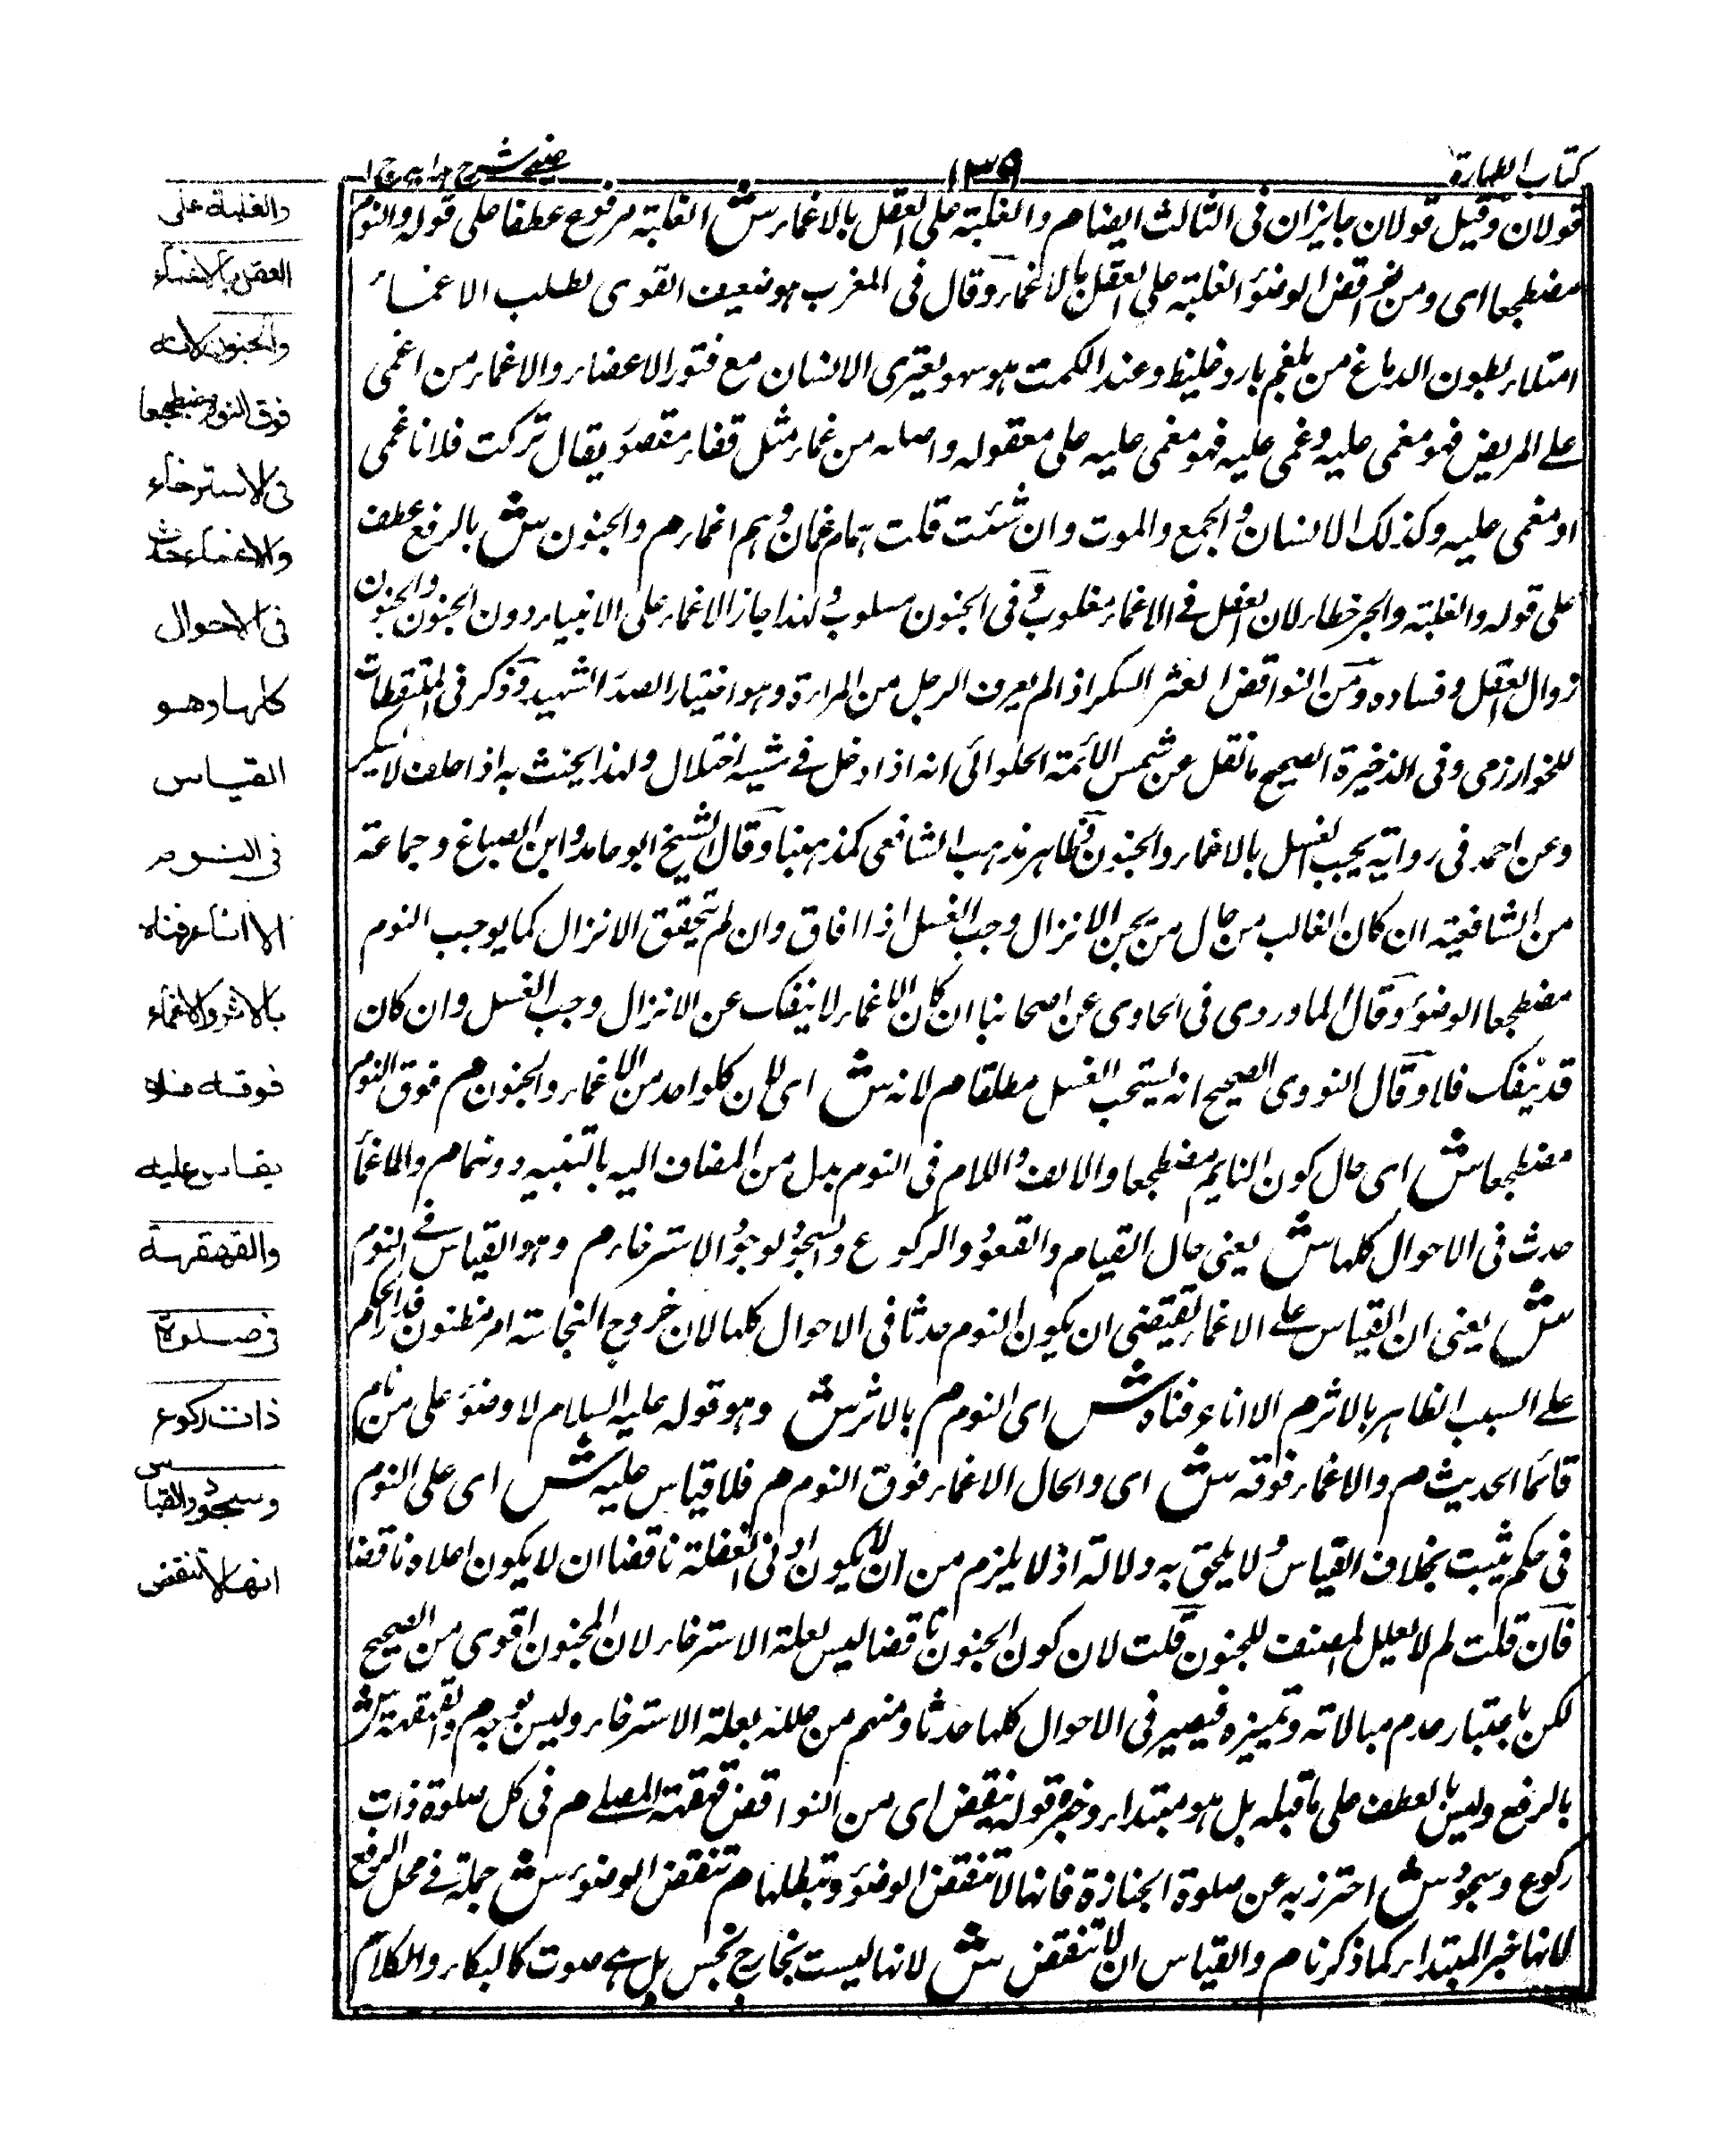 كتاب الطهارة
١٣٩
عيني شرح هدايه ج ١
قولان وقيل قولان جايزان فى الثالث ايضا م والغلبة على العقل بالاغماء ش الغلبة مرفوع عطفا على قوله والنوم
مضطجعا اى ومن نواقض الوضوء الغلبة على العقل بالاغماء وقال فى المغرب هو ضعيف القوى لطلب الاغماء
امتلاء بطون الدماغ من بلغم بارد غليظ وعند الكمت هو سهو يعترى الانسان مع فتور الاعضاء والاغماء من اغمى
على المريض فهو مغمى عليه وغمى عليه فهو مغمى عليه على معقوله واصله من غماء مثل قفاء مقصور يقال تركت فلانا غمى
او مغمى عليه وكذلك الانسان والجمع والموت وان شئت قلت هما غمان وهم اغماء م والجنون ش بالرفع عطف
على قوله والغلبة والجر خطاء لان العقل فى الاغماء مغلوب وفى الجنون مسلوب ولهذا جاز الاغماء على الانبياء دون الجنون والجنون
زوال العقل وفساده ومن النواقض العشر السكر اذا لم يعرف الرجل من المراءة وهو اختيار الصدر الشهيد وذكر فى الملتقطات
للخوارزمى وفى الذخيرة الصحيح ما نقل عن شمس الأئمة الحلوائى انه اذا دخل فى مشيه اختلال ولهذا يحنث به اذا حلف لا يسكر
وعن احمد فى رواية يجب الغسل بالاغماء والجنون وظاهر مذهب الشافعى كمذهبنا وقال الشيخ ابو حامد وابن الصباغ وجماعة
من الشافعية ان كان الغالب من حال من يجن الانزال وجب الغسل اذا افاق وان لم يتحقق الانزال كما يوجب النوم
مضطجعا الوضوء وقال الماوردى فى الحاوى عن اصحابنا ان كان الاغماء لا ينفك عن الانزال وجب الغسل وان كان
قد ينفك فلا وقال النووى الصحيح انه يستحب الغسل مطلقا م لانه ش اى لان كلواحد من الاغماء والجنون م فوق النوم
مضطجعا ش اى حال كون النايم مضطجعا والالف واللام فى النوم بدل من المضاف اليه م والاغماء
حدث فى الاحوال كلها ش يعنى حال القيام والقعود والركوع والسجود لوجود الاسترخاء م وهو القياس فى النوم
ش يعنى ان القياس على الاغماء يقتضى ان يكون النوم حدثا فى الاحوال كلها لان خروج النجاسة امر مظنون فدار الحكم
على السبب الظاهر بالاثر م الا انا عرفناه ش اى النوم م بالاثر ش وهو قوله عليه السلام لا وضوء على من نام
قائما الحديث م والاغماء فوقه ش اى والحال الاغماء فوق النوم م فلا قياس عليه ش اى على النوم
فى حكم يثبت بخلاف القياس ولا يلحق به دلالة اذ لا يلزم من ان لا يكون ادنى الغفلة ناقضا ان لا يكون اعلاه ناقضا
فان قلت لم لا يعلل المصنف للجنون قلت لان كون الجنون ناقضا ليس لعلة الاسترخاء لان المجنون اقوى من الصحيح
لكن باعتبار عدم مبالاته وتمييزه فيصير فى الاحوال كلها حدثا ومنهم من علله بعلة الاسترخاء وليس بوجه م والقهقهة ش
بالرفع وليس بالعطف على ما قبله بل هو مبتداء وخبره قوله ينقض اى من النواقض قهقهة المصلى م فى كل صلوة ذات
ركوع وسجود ش احترز به عن صلوة الجنازة فانها لا تنقض الوضوء وتبطلها م تنقض الوضوء ش جملة فى محل الرفع
لانها خبر المبتداء كما ذكرنا م والقياس ان لا تنقض ش لانها ليست بخارج نجس بل هى صوت كالبكاء والكلام
والغلبة على
العقل بالاغماء
والجنون لانه
فوق النوم مضطجعا
فى الاسترخاء
والاغماء حدث
فى الاحوال
كلها وهو
القياس
فى النوم
الا انا عرفناه
بالاثر والاغماء
فوقه فلا
يقاس عليه
والقهقهة
فى صلوة
ذات ركوع
وسجود والقياس
انها لا تنقض